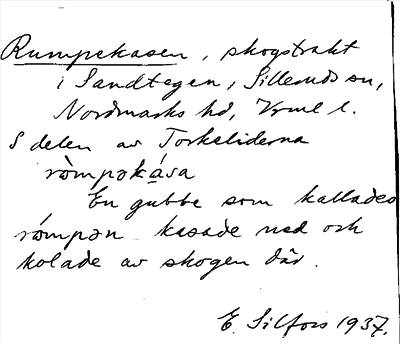 Rumpekasen, skogstrakt
i Sandtegen, Silleruds sn,
Nordmarks hd, Vrml l.
S delen av Torkeliderna
ròmpəkása
En gubbe som kallades
rómpən kasade ned och
kolade av skogen där.
E. Silfors 1937.